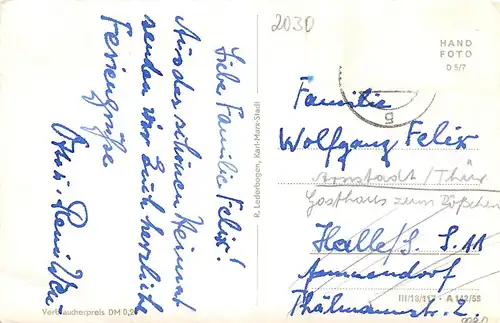 Liebe Familie Felix!
Aus der schönen Heimat
senden wir Euch herzliche
Feriengrüße
Otto u.
Verbraucherpreis DM 0,2
R. Lederbogen, Karl-Marx-Stadt
2030
HAND
FOTO
D 5/7
5
Familie
Wolfgang Felix
Arnstadt/Thür
Gasthaus zum
Halle/S. S. 11
Ammendorf
Thälmannstr. 2
III/18/117 - A 142/58